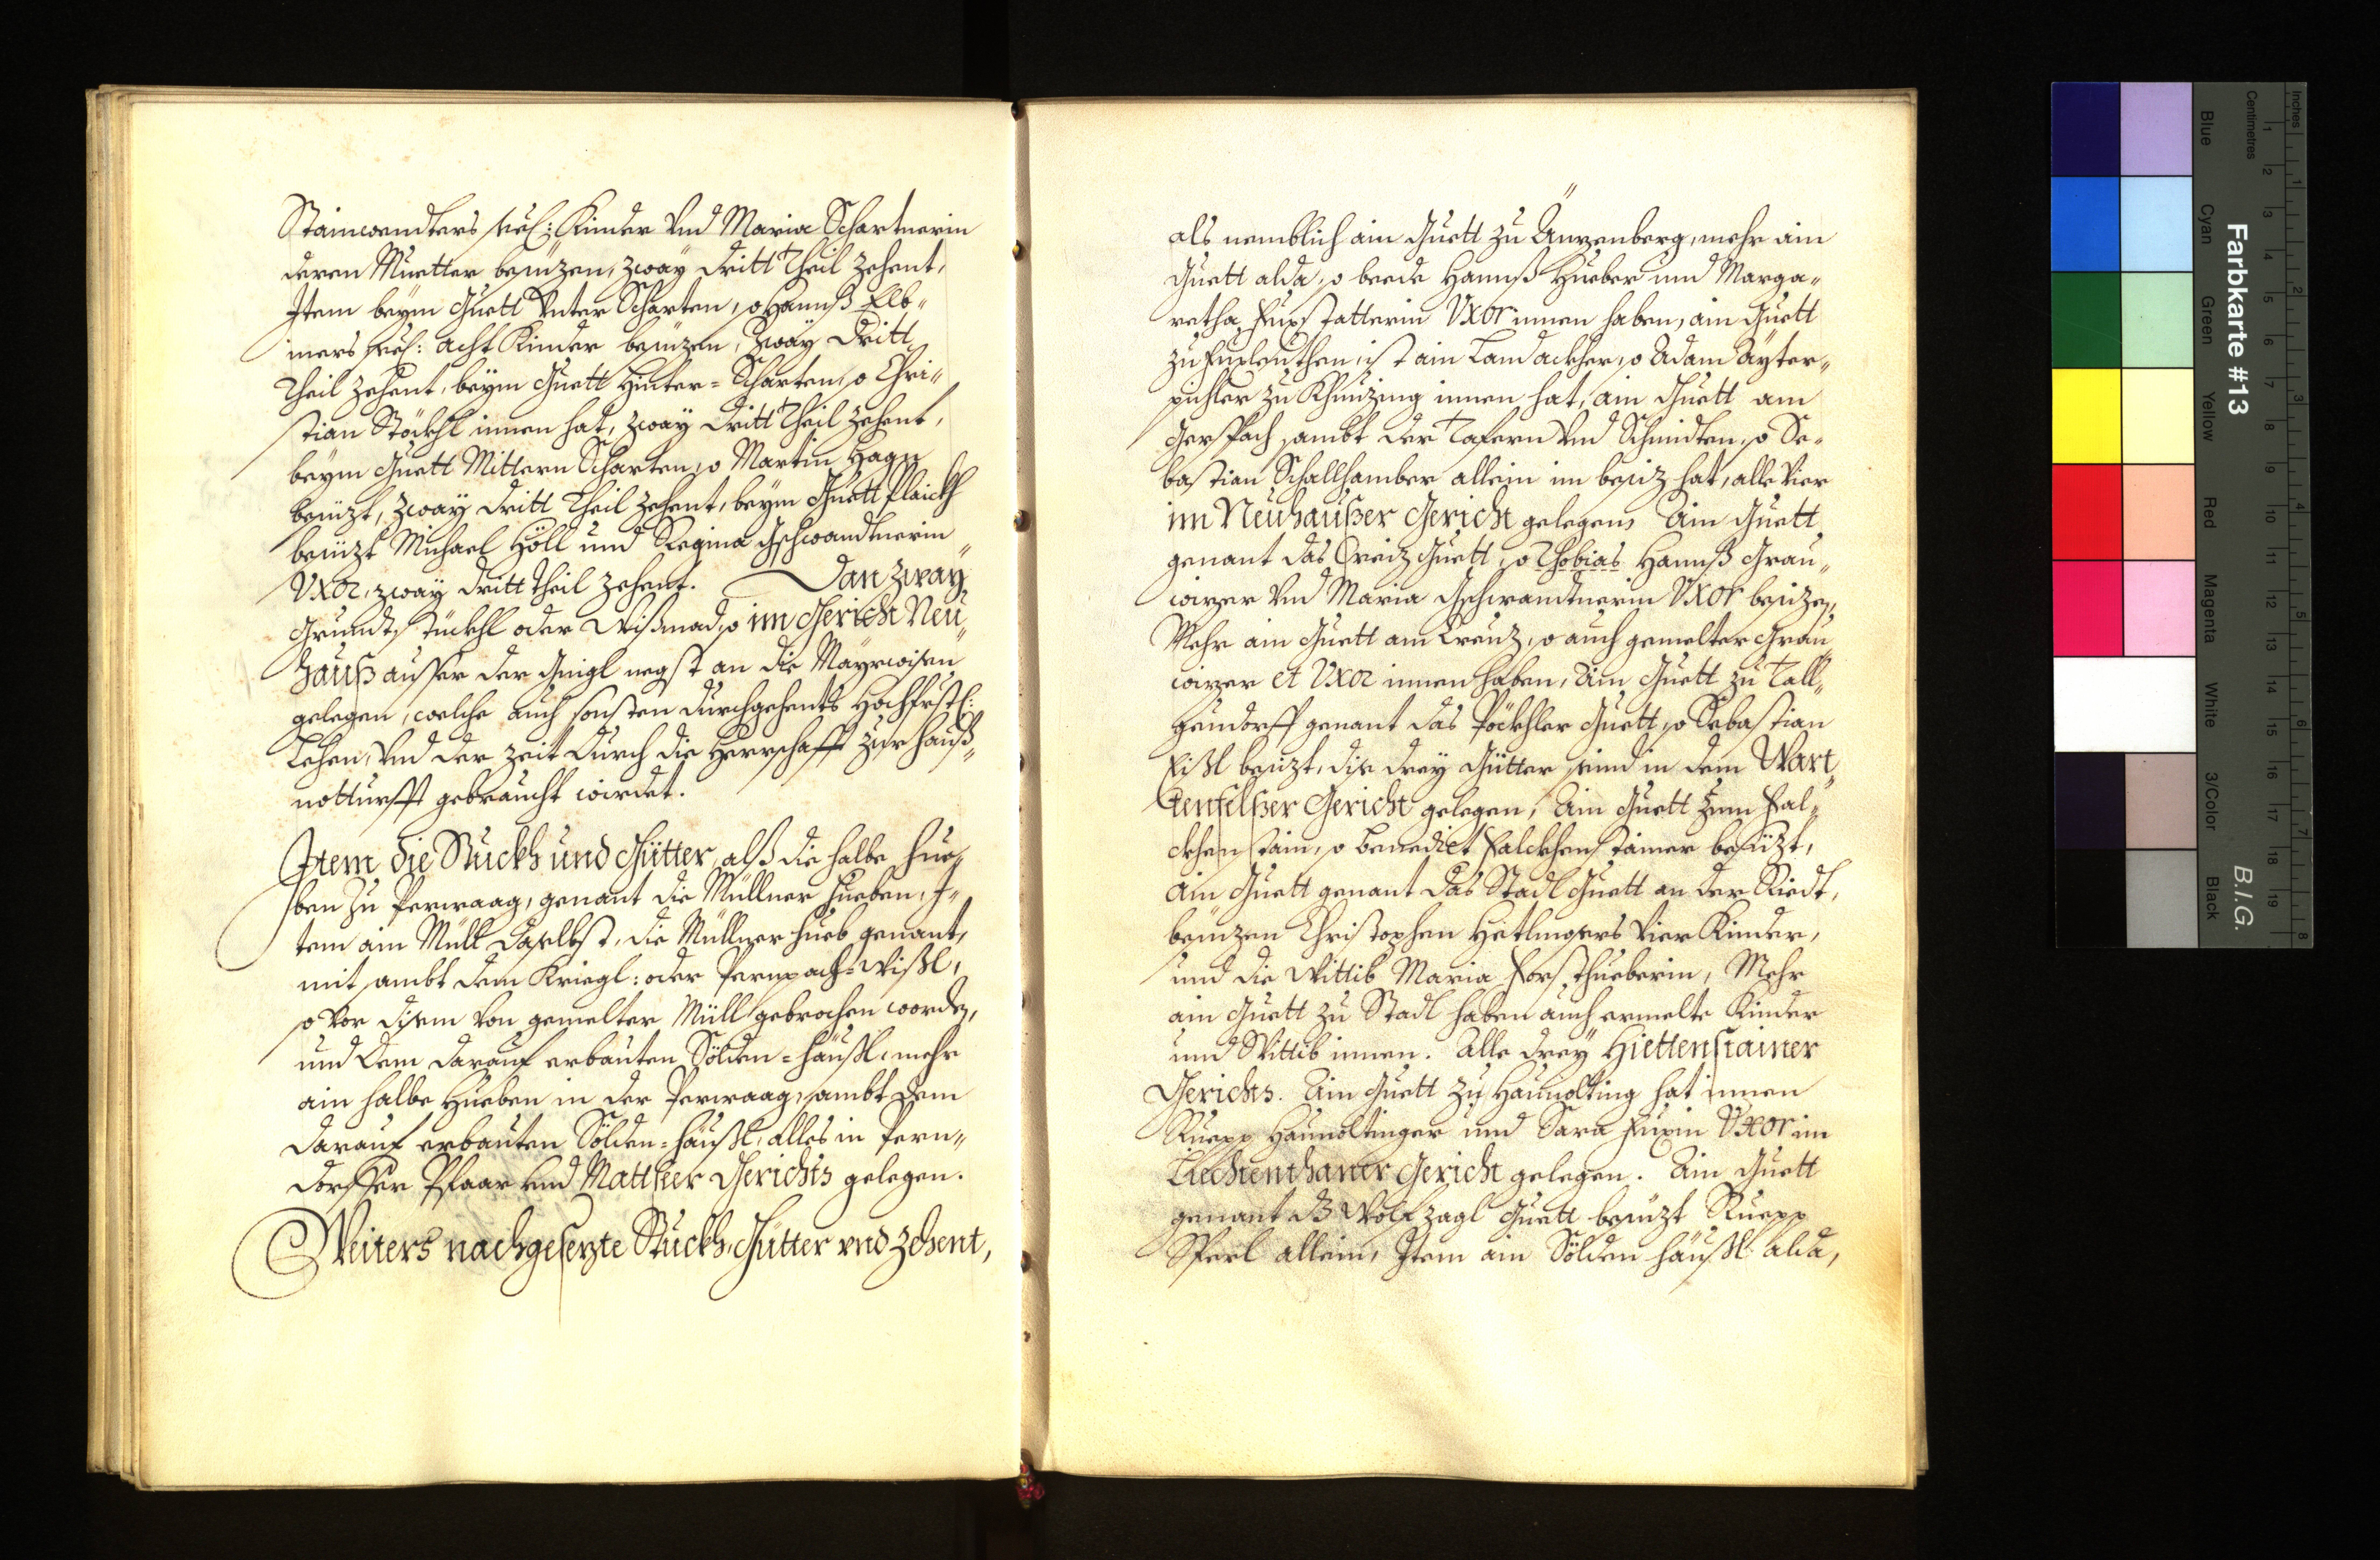 Stainwendters seel: Kinder vnd Maria Schartnerin
deren Muetter besizen, zway dritt Theil Zehent,
Item beym Guett Vnter Scharten, so Hannß Elb„
iners seel: acht Kinder besizen, Zway Dritt
Theil Zehent, beym Guett Hinter-Scharten, so Chri„
stian Stöckhl innen hat, zway dritt Theil Zehent,
beym Guett Mittern Scharten, so Martin Hagn
besizt, zway dritt Theil Zehent, beym Guett Plaickh
besizt Michael Höll und Regina Gschwandtnerin
Vxor, zway dritt Theil Zehent. Dan zway
Grundtstückhl oder Wißmad, so im Gericht Neu„
hauß ausser der Gnigl negst an die Mayrwisen
gelegen, welche auch sonsten durchgehents Hochfrstl:
Lehen, vnd der Zeit durch die Herrschafft zur Hauß„
notturfft gebraucht wirdet.
Item die Stuckh und Gütter, alß die halbe Hue„
ben Zu Perwaag, genant die Müllner Hueben, I„
tem ain Müll daselbst, die Müllner Hueb genant,
mit sambt dem Kriegl: oder Pernpach-Wißl,
so vor disem von gemelter Müll gebrochen worden,
und dem darauf erbauten Sölden-häußl, mehr
ain halbe Hueben in der Perwaag, sambt dem
darauf erbauten Sölden-häußl, alles in Pern„
dorffer Pfaar vnd Mattseer Gerichts gelegen.
Weiters nachgesezte Stuckh, Gütter vnd Zehent,
als nemblich ain Guett zu Änzenberg, mehr ain
Guett alda, so beede Hannß Hueber und Marga„
retha Fuxstatterin Vxor innen haben, ain Guett
zu Fuxleuthen, ist ain Landackher, so Adam Ayter„
pichler zu Khinzing innen hat, ain Guett am
Gerspach sambt der Tafern vnd Schmidten, so Se„
bastian Schallhamber allein im besiz hat, alle Vier
im Neuhaußer Gericht gelegen, Ain Guett
genant das Creiz Guett, so Thobias Hannß Grau„
wizer vnd Maria Gschwandtnerin Vxor besizen,
Mehr ain Guett am Creuz, so auch gemelter Grau„
wizer et Vxor innen haben, Ain Guett zu Tall„
geudorff genant das Pöckhler Guett, so Sebastian
Eißl besizt, dise drey Gütter seind in dem Wart„
tenfelßer Gericht gelegen, Ain Guett zum Fal„
ckhenstain, so Benedict Falckhenstainer besizt,
Ain Guett genant das Stadl Guett an der Riedt,
besizen Christophen Hetlingers Vier Kinder,
und die Wittib Maria Forsthueberin, Mehr
ain Guett zu Stadl haben auch ermelte Kinder
und Wittib innen. Alle drey Hiettenstainer
Gerichts. Ain Guett zu Haunolting hat innen
Ruepp Haunoltinger und Sara Fuxin Vxor im
Liechtenthaner Gericht gelegen. Ain Guett
genant dz Wolfzagl Guett besizt Ruepp
Sperl allein, Item ain Sölden häußl alda,
Farbkarte #13
B.I.G.
Inches
Centimetres
1 2 3 4 5 6 7 8
1 2 3 4 5 6 7 8 9 10 11 12 13 14 15 16 17 18 19
Blue
Cyan
Green
Yellow
Red
Magenta
White
3/Color
Black